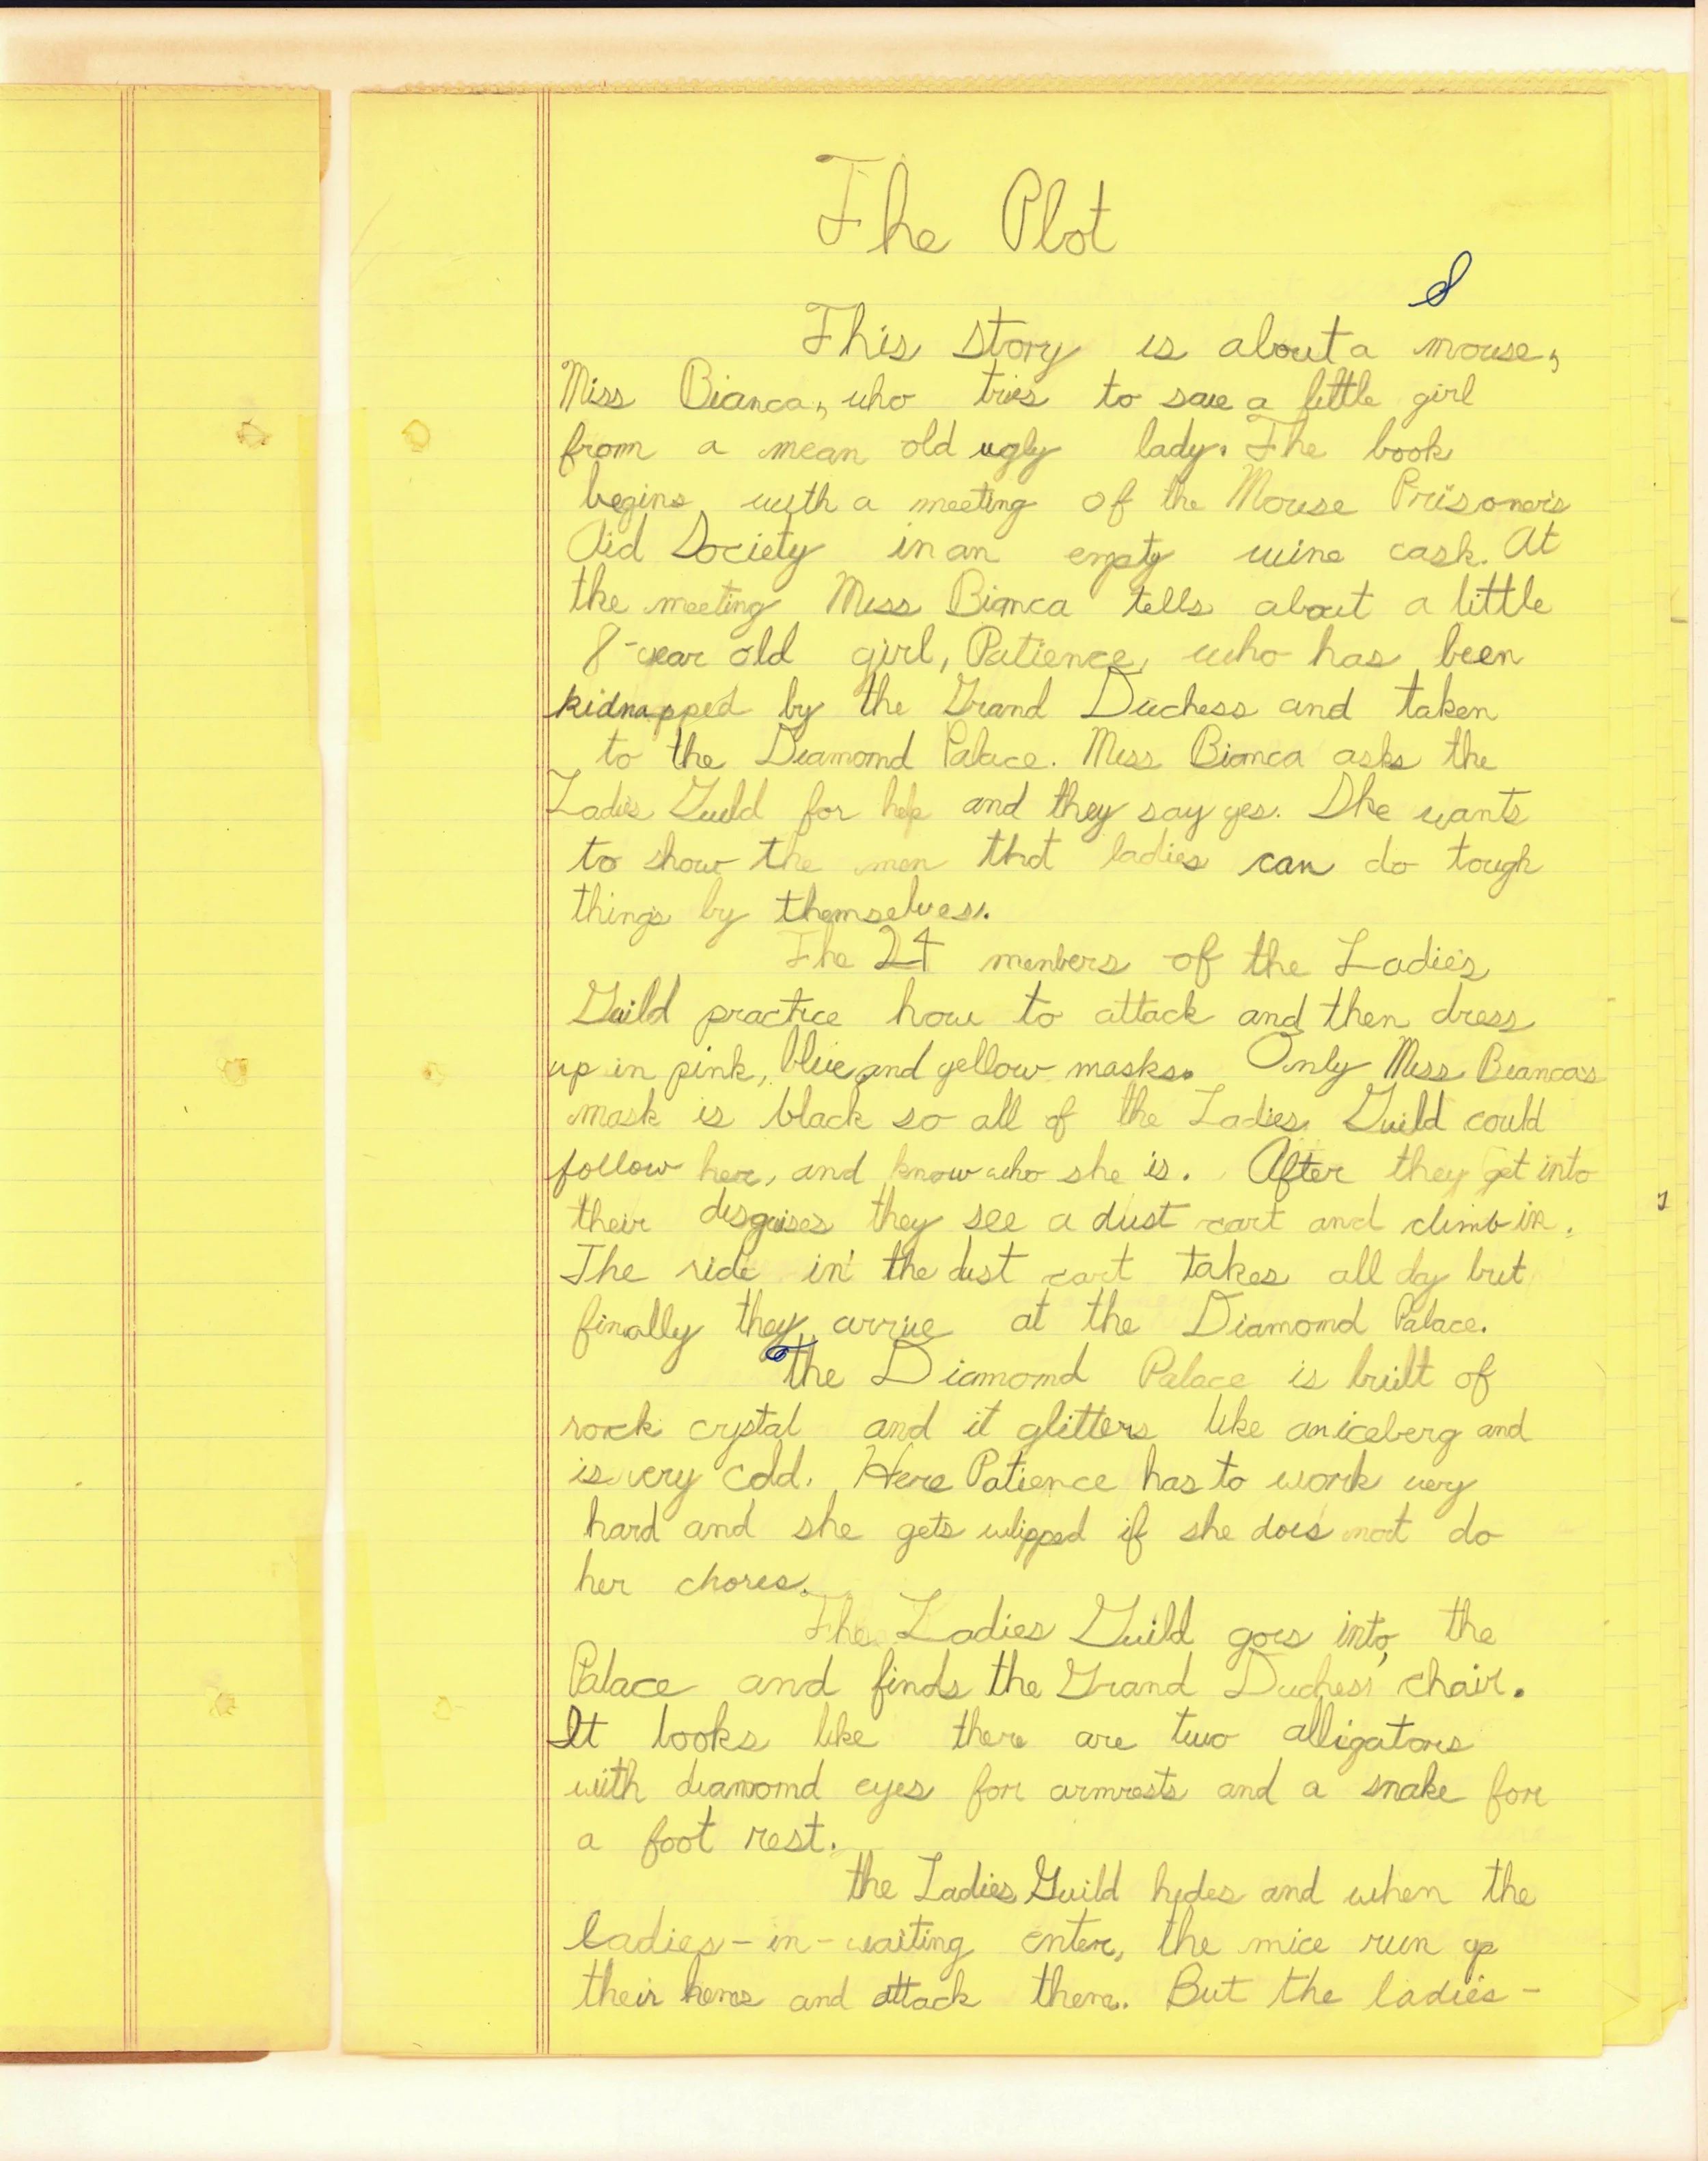 The Plot
This story is about a mouse,
Miss Bianca, who tries to save a little girl
from a mean old ugly lady. The book
begins with a meeting of the Mouse Prisoner's
Aid Society in an empty wine cask. At
the meeting Miss Bianca tells about a little
8-year old girl, Patience, who has been
kidnapped by the Grand Duchess and taken
to the Diamond Palace. Miss Bianca asks the
Ladies Guild for help and they say yes. She wants
to show the men that ladies can do tough
things by themselves.
The 24 members of the Ladies
Guild practice how to attack and then dress
up in pink, blue and yellow masks. Only Miss Bianca's
mask is black so all of the Ladies Guild could
follow her, and know who she is. After they get into
their disguises they see a dust cart and climb in.
The ride in the dust cart takes all day but
finally they arrive at the Diamond Palace.
The Diamond Palace is built of
rock crystal and it glitters like an iceberg and
is very cold. Here Patience has to work very
hard and she gets whipped if she does not do
her chores.
The Ladies Guild goes into, the
Palace and finds the Grand Duchess' chair.
It looks like there are two alligators
with diamond eyes for armrests and a snake for
a foot rest.
the Ladies Guild hides and when the
ladies-in-waiting enter, the mice run up
their hems and attack them. But the ladies-